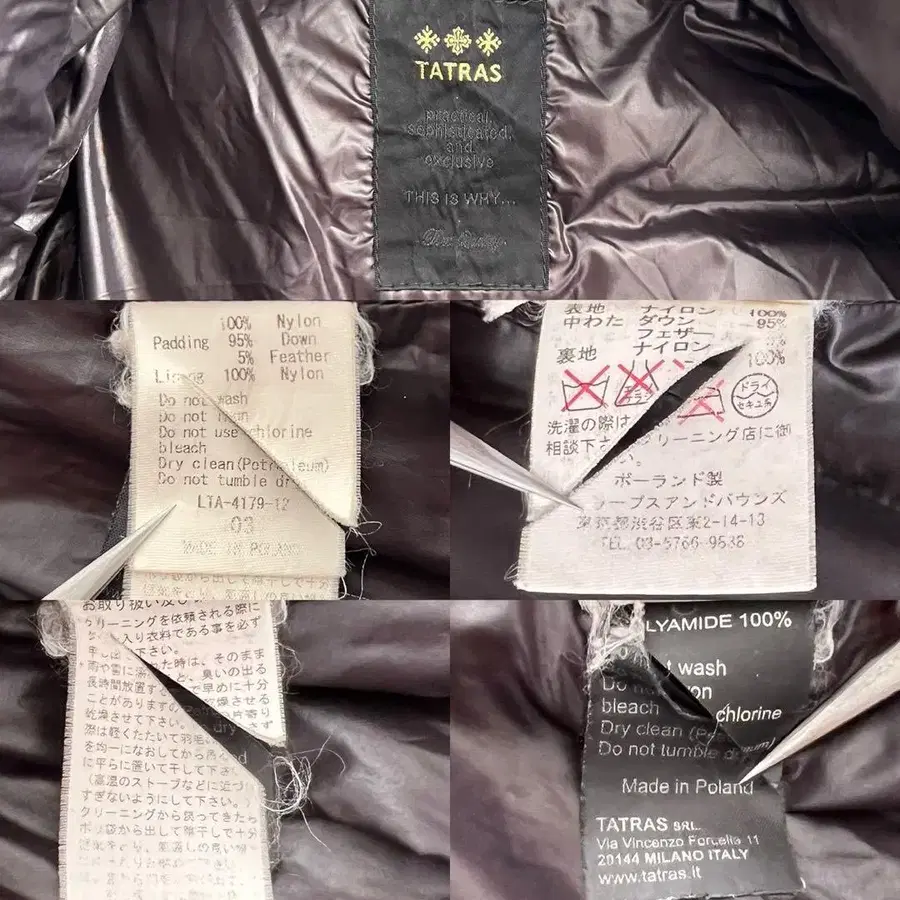 TATRAS
practical,
sophisticated,
and
exclusive
THIS IS WHY...
100% Nylon
Padding 95% Down
5% Feather
100% Nylon
Do not wash
Do not
Do not use chlorine
bleach
Dry clean
Do not tumble
LTA-4179-12
03
MADE IN POLAND
表地 ナイロン 100%
中わた ダウン 95%
フェザー
裏地 ナイロン 100%
ドライ
セキユ系
洗濯の際は
相談下 クリーニング店に御
い。
ポーランド製
ープスアンドバウンズ
東京都渋谷区東2-14-13
TEL. 03-5766-9538
お取り扱い及び
クリーニングを依頼される際に
入り衣料である事を必ず
下さい。
雨や雪に 時は、そのまま
長時間放置す と、臭いの出る
ことがあります 早めに十分
乾燥させて下さい。
際は軽くたたいて羽毛の
を均一になおしてから
に平らに置いて干して下さい
(高温のストーブなどに近づ
すぎないようにして下さい。)
クリーニングから戻ってきたら
ポリ袋から出して陰干しで十分
LYAMIDE 100%
wash
Do
bleach chlorine
Dry clean
Do not tumble
Made in Poland
TATRAS SRL.
Via Vincenzo Forcella 11
20144 MILANO ITALY
www.tatras.it